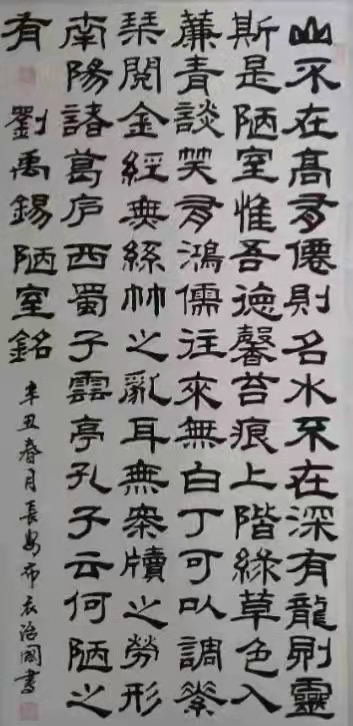 山不在高有僊則名水不在深有龍則靈
斯是陋室惟吾德馨苔痕上階綠草色入
薕青談笑有鴻儒往來無白丁可以調素
琴閱金經無絲竹之亂耳無案牘之勞形
南陽諸葛庐西蜀子雲亭孔子云何陋之
有 劉禹錫陋室銘
辛丑春月長安布衣治國書